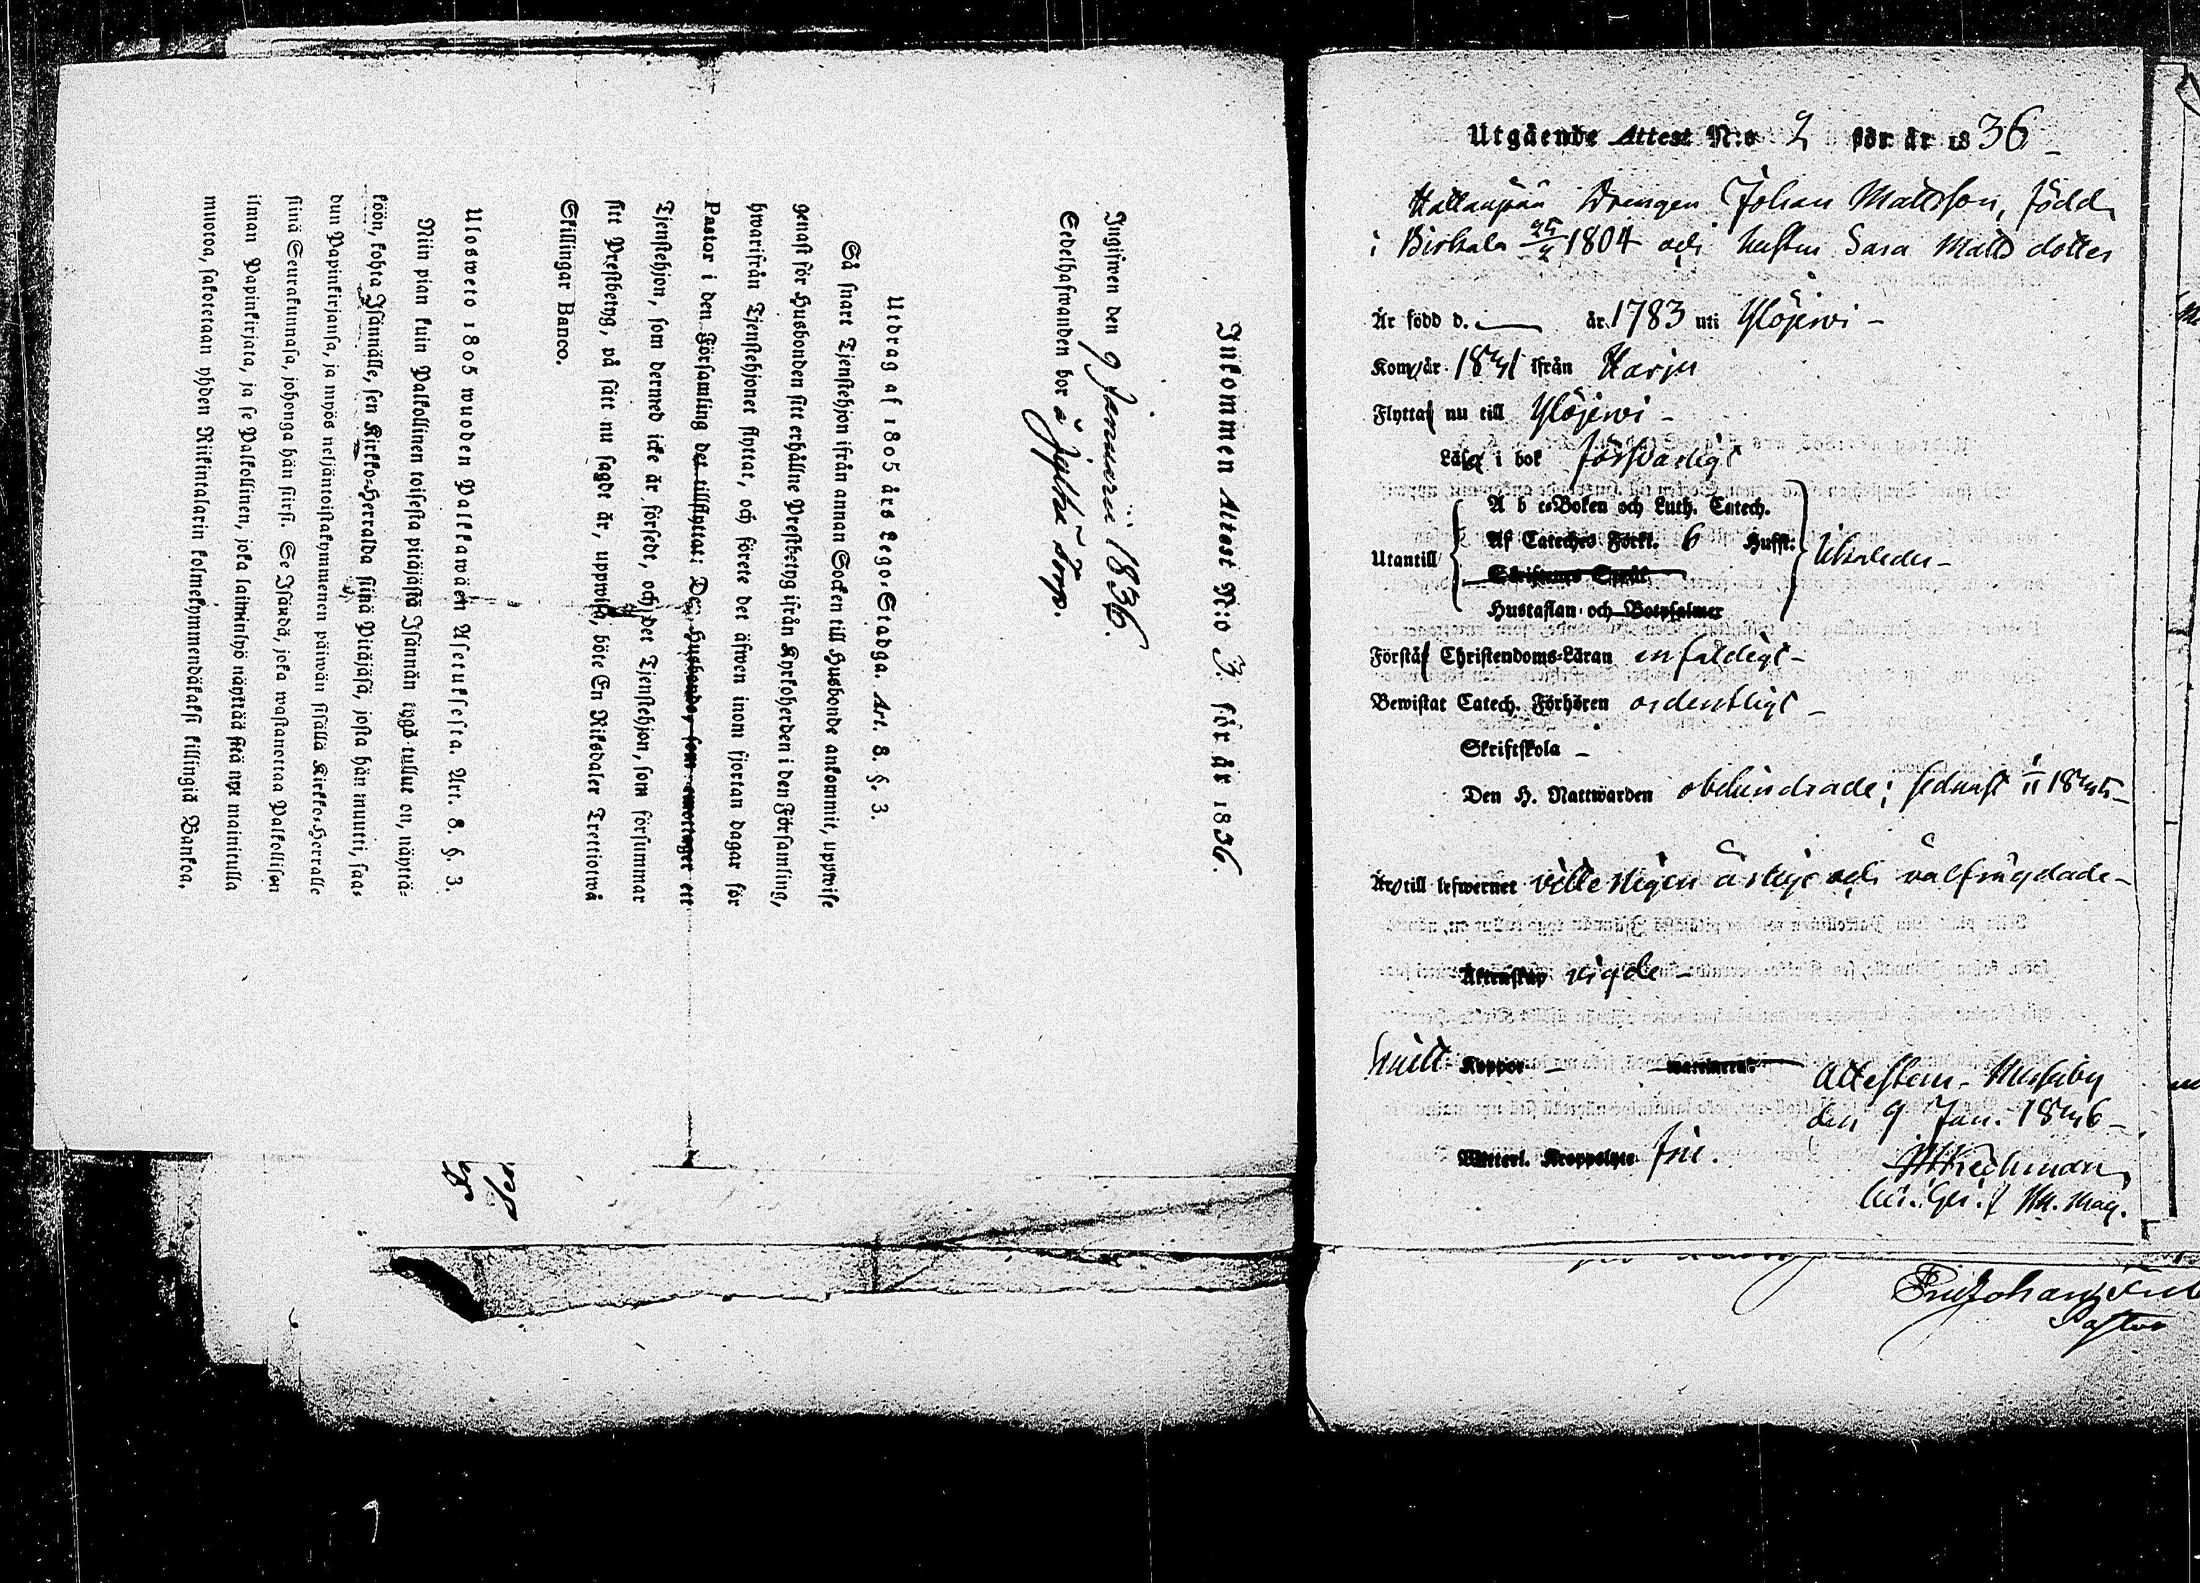 Inkommen Attest N:o 3. för år 1836.
Ingifwen den 9 Januarii 1836.
Sedelhafwanden bor å
Utdrag af 1805 års Lego-Stadga. Art. 8. §. 3.
Så snart Tjenstehjon ifrån annan Socken till Husbonde ankommit, uppwise
genast för Husbonden sitt erhållne Prestbetyg ifrån Kyrkoherden i den Församling,
hwarifrån Tjenstehjonet flyttat, och förete det äfwen inom fjortan dagar för
Pastor i den Församling det tillflyttat: Den Husbonde, som emottager ett
Tjenstehjon, som dermed icke är försedt, och det Tjenstehjon, som försummar
sitt Prestbetyg, på sätt nu sagdt är, uppwisa, böte En Riksdaler Trettiotwå
Skillingar Banco.
Ulosweto 1805 wuoden Palkkawäen Asetuksesta. Art. 8. §. 3.
Niin pian kuin Palkollinen toisesta pitäjästä Isännän tygö tullut on, näyttä-
köön, kohta Isännälle, sen Kirkko-Herralda siinä Pitäjäsä, josta hän muutti, saa-
dun Papinkirjansa, ja myös neljäntoistakymmenen päiwän sisällä Kirkko-Herralle
siinä Seurakunnasa, johonga hän siirsi. Se Isändä, joka wastanottaa Palkollisen
ilman Papinkirjata, ja se Palkollinen, joka laiminlyö näyttää sitä nyt mainitulla
muotoa, sakotetaan yhden Riikintalarin kolmekymmendäkaksi killingiä Bankoa.
Utgående Attest N:o 2 för år 1836
Drengen Johan Mattsson, född
i Birkala 25/2 1804 och hustru Sara Matts dotter
Är född d. år 1783 uti Ylöjerwi
Kom år 1831 ifrån Harju
Flytta nu till Ylöjerwi
Läsa i bok försvarligt
A b c-Boken och Luth. Catech.
Af Cateches Förkl. 6 Hufst:
Utantill
Skriftenes Språk
Hustaflan och Botpsalmer
Förstå Christendoms-Läran enfaldigt
Bewistat Catech. Förhören ordentligt
Skriftskola
Den H. Nattwarden obehindrade; sednast 1/11 1835
Äro till lefwernet ärlige och välfrägdade
Äktenskap vigde
haft Koppor
Attestem. Messuby
den 9 Jan. 1836
Witterl. Kroppslyte frie.
Johan
Pastor